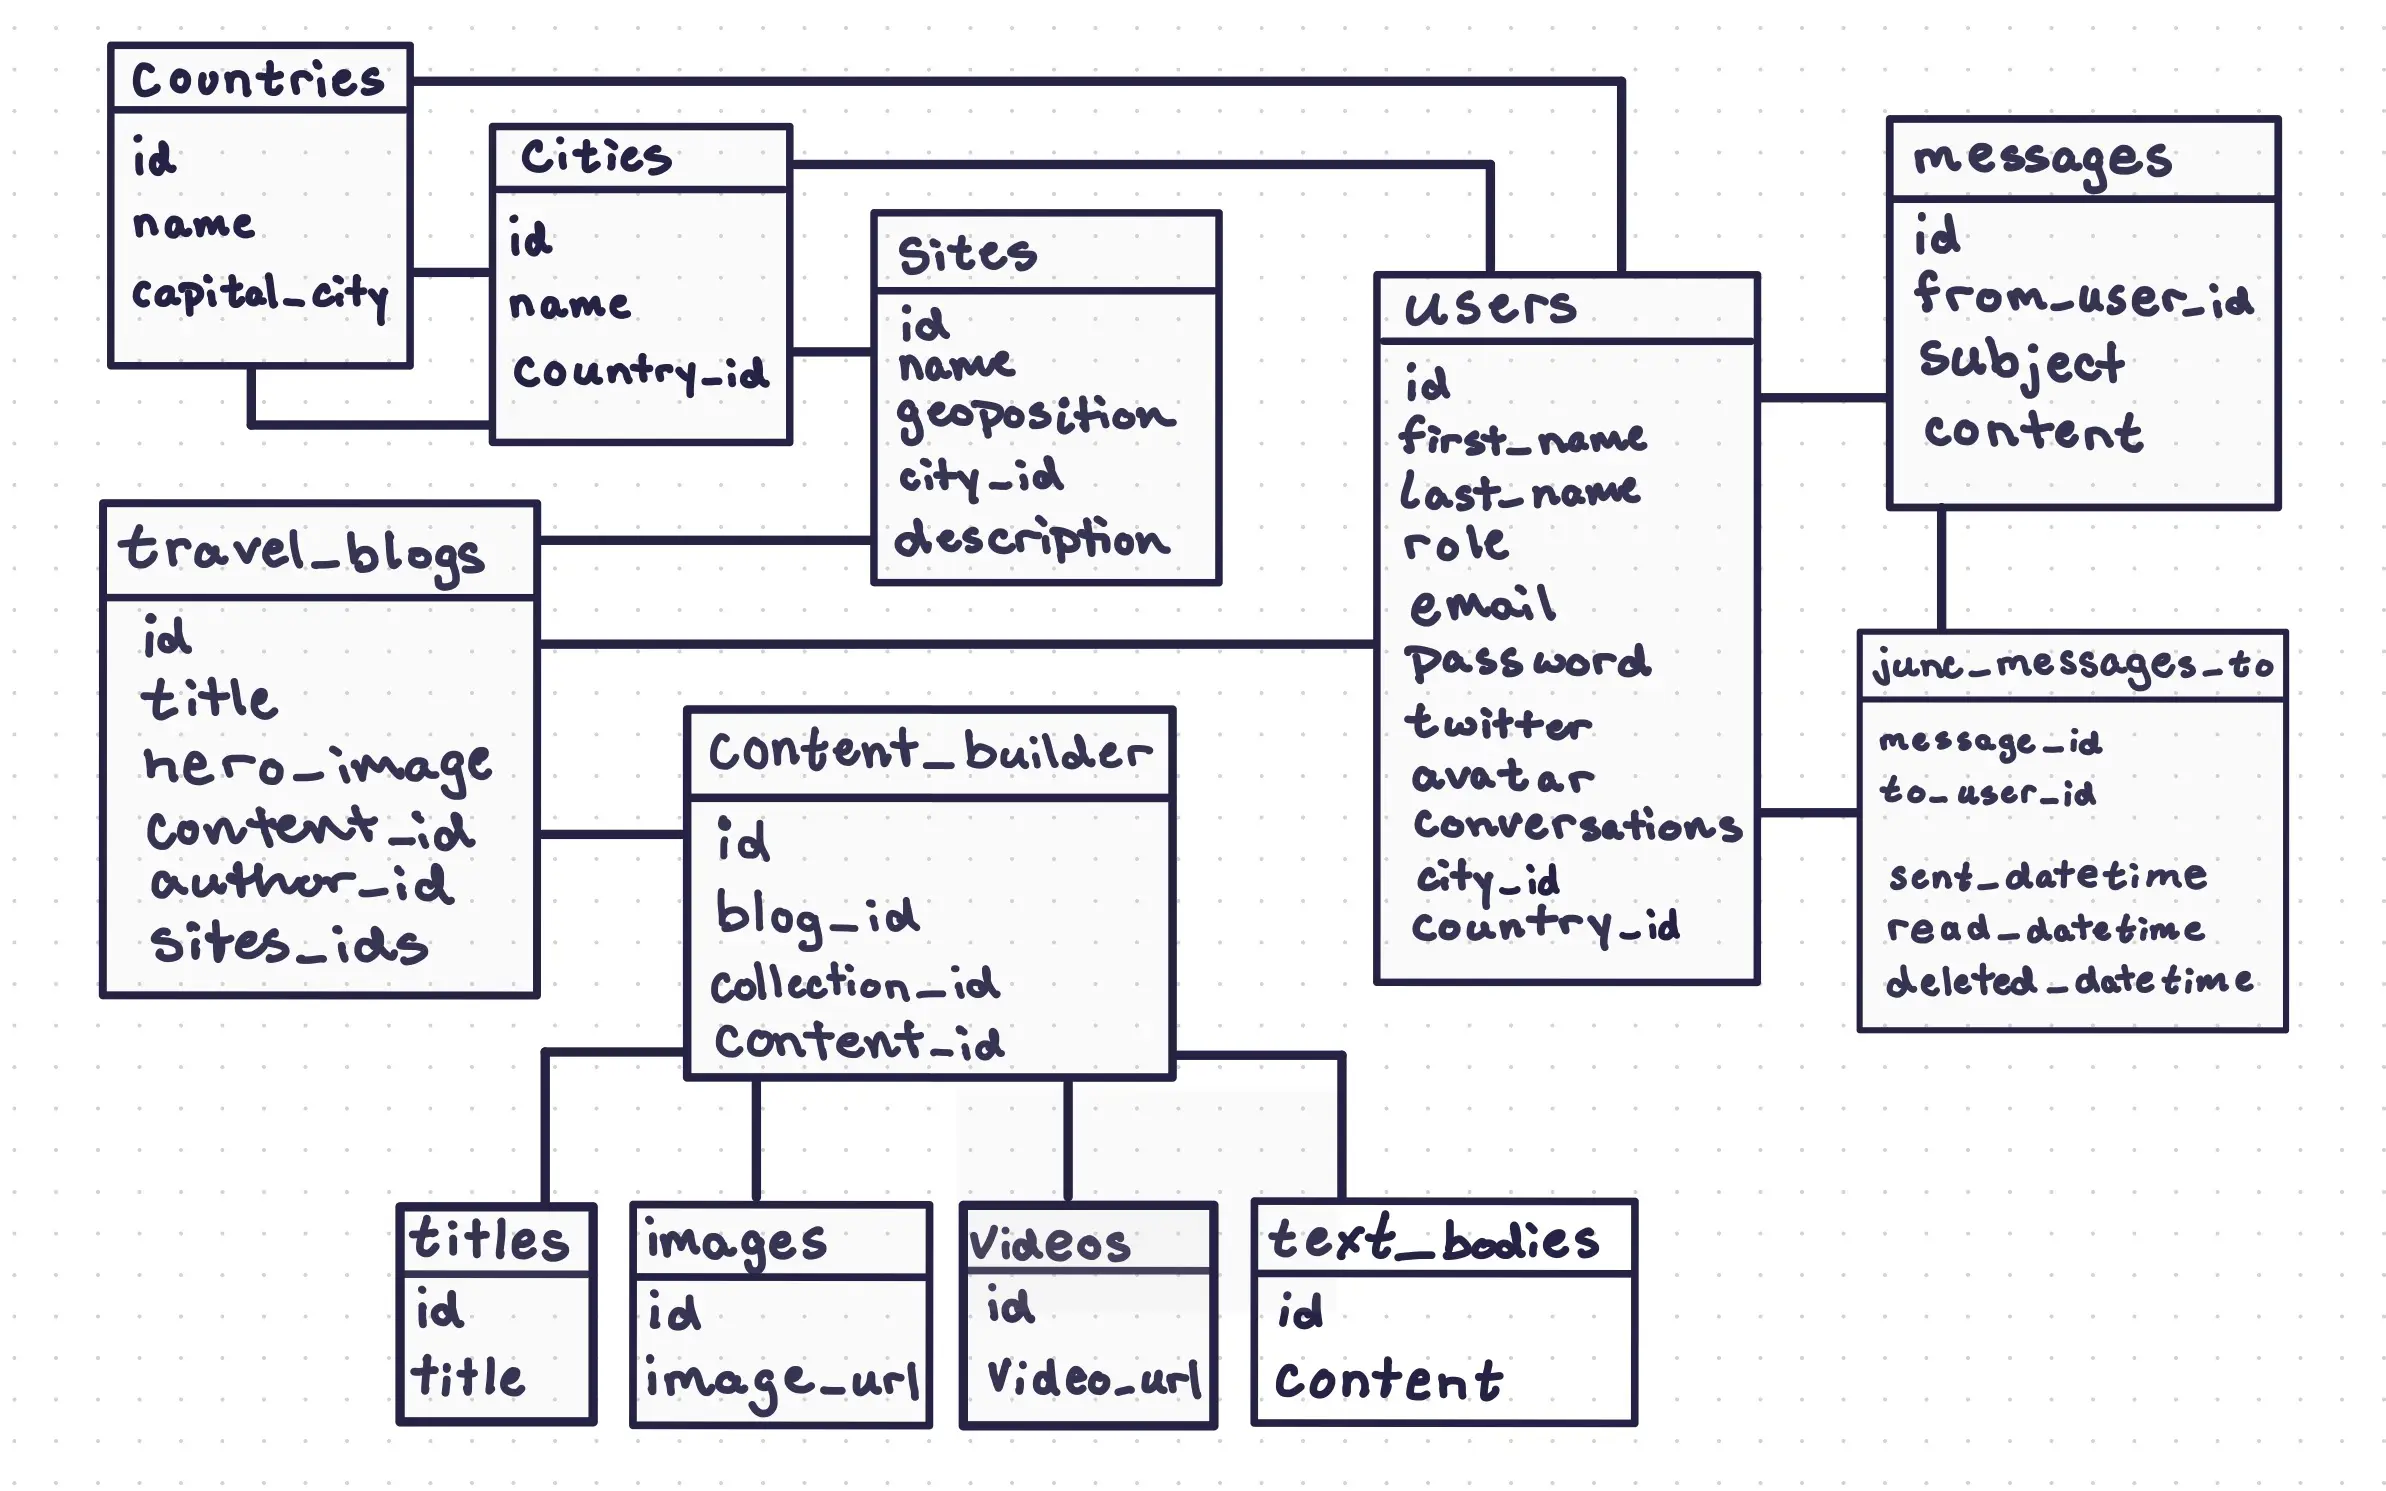 Countries
id
name
capital_city
Cities
id
name
country_id
Sites
id
name
geoposition
city_id
description
users
id
first_name
last_name
role
email
password
twitter
avatar
conversations
city_id
country_id
messages
id
from_user_id
subject
content
junc_messages_to
message_id
to_user_id
sent_datetime
read_datetime
deleted_datetime
travel_blogs
id
title
hero_image
content_id
author_id
sites_ids
content_builder
id
blog_id
collection_id
content_id
titles
id
title
images
id
image_url
Videos
id
Video_url
text_bodies
id
content